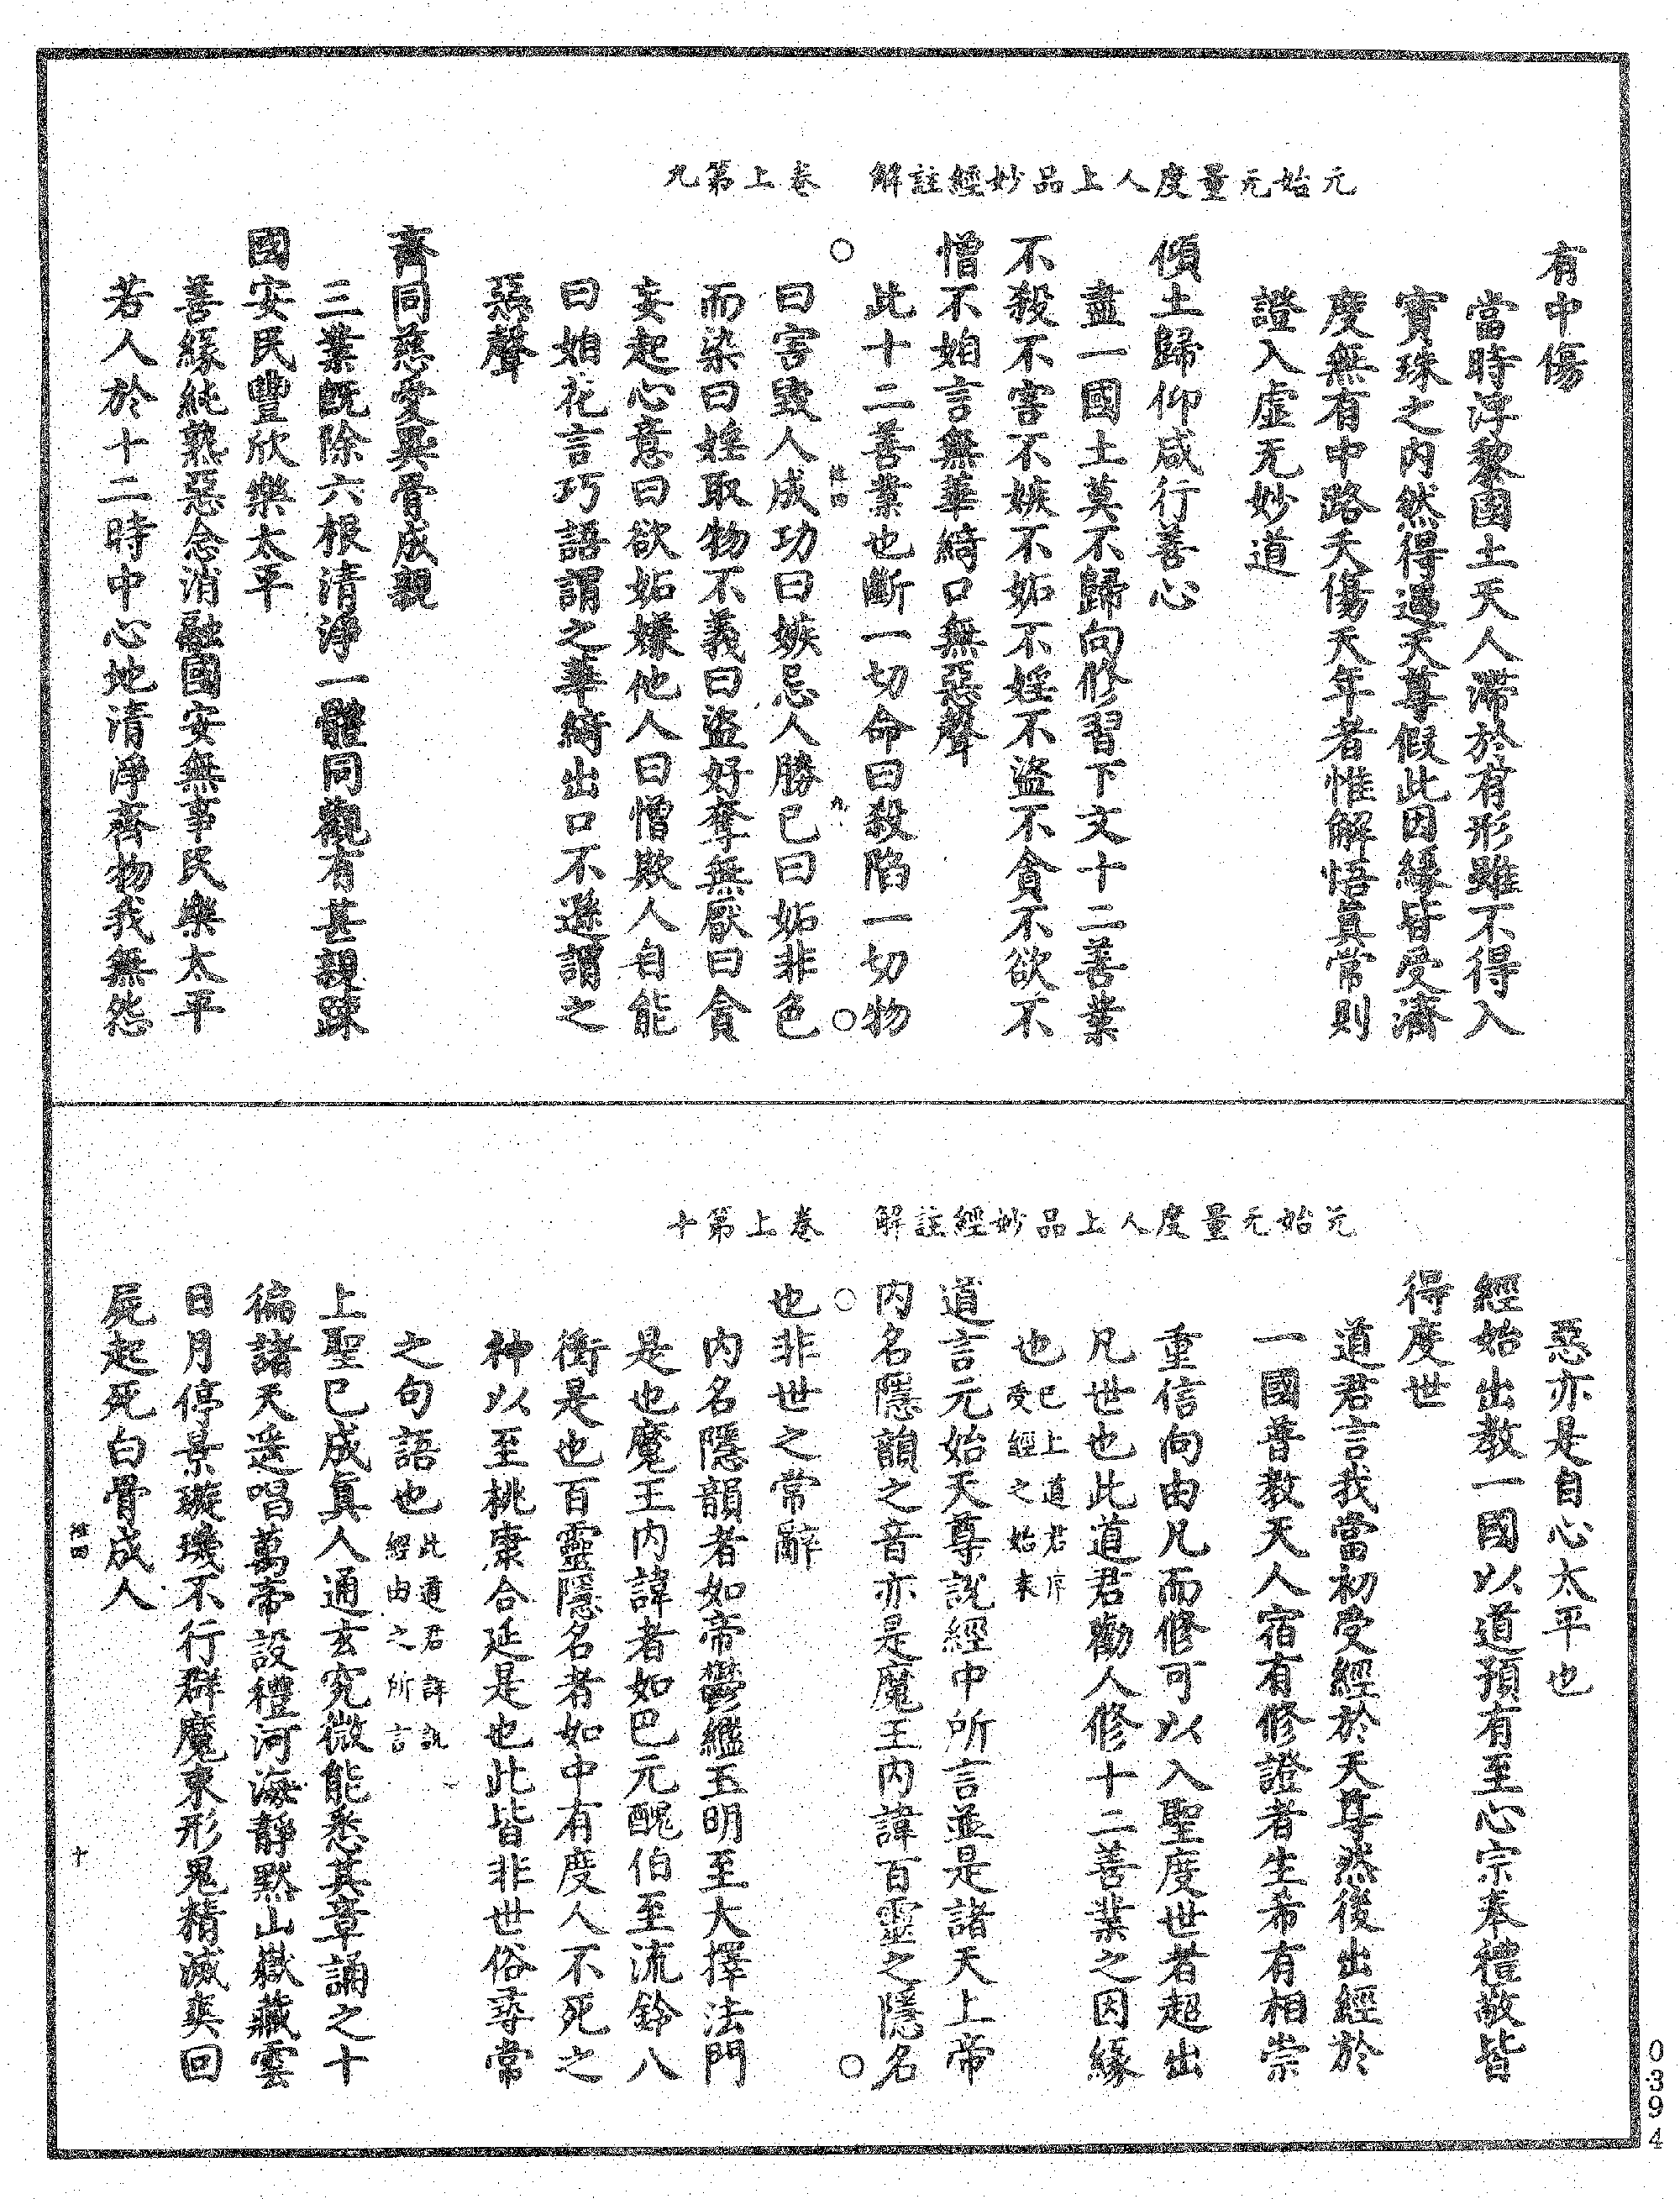 元始无量度人上品妙經註解　卷上第九
有中傷
當時浮黎國土天人滯於有形雖不得入
寶珠之內然得遇天尊假此因緣皆受濟
度無有中路夭傷天年者惟解悟真常則
證入虛无妙道
傾土歸仰咸行善心
盡一國土莫不歸向修習下文十二善業
不殺不害不嫉不妬不婬不盜不貪不欲不
憎不妒言無華綺口無惡聲
此十二善業也斷一切命曰殺陷一切物
曰害毀人成功曰嫉忌人勝己曰妬非色
而染曰婬取物不義曰盜好奪無厭曰貪
妄起心意曰欲妬嫌他人曰憎欺人自能
曰妒花言巧語謂之華綺出口不遜謂之
惡聲
齊同慈愛異骨成親
三業既除六根清淨一體同觀有甚親踈
國安民豐欣樂太平
善緣純熟惡念消融國安無事民樂太平
若人於十二時中心地清淨齊物我無怨
九
元始无量度人上品妙經註解　卷上第十
惡亦是自心太平也
經始出教一國以道預有至心宗奉禮敬皆
得度世
道君言我當初受經於天尊然後出經於
一國普教天人宿有修證者生希有相崇
重信向由凡而修可以入聖度世者超出
凡世也此道君勸人修十二善業之因緣
也已上道君序受經之始末
道言元始天尊說經中所言並是諸天上帝
內名隱韻之音亦是魔王內諱百靈之隱名
也非世之常辭
內名隱韻者如帝鬱繼玉明至大擇法門
是也魔王內諱者如巴元醜伯至流鈴八
衝是也百靈隱名者如中有度人不死之
神以至桃康合延是也此皆非世俗尋常
之句語也此道君詳說經由之所言
上聖已成真人通玄究微能悉其章誦之十
徧諸天遥唱萬帝設禮河海靜默山嶽藏雲
日月停景璇璣不行群魔束形鬼精滅爽回
屍起死白骨成人
十
0394